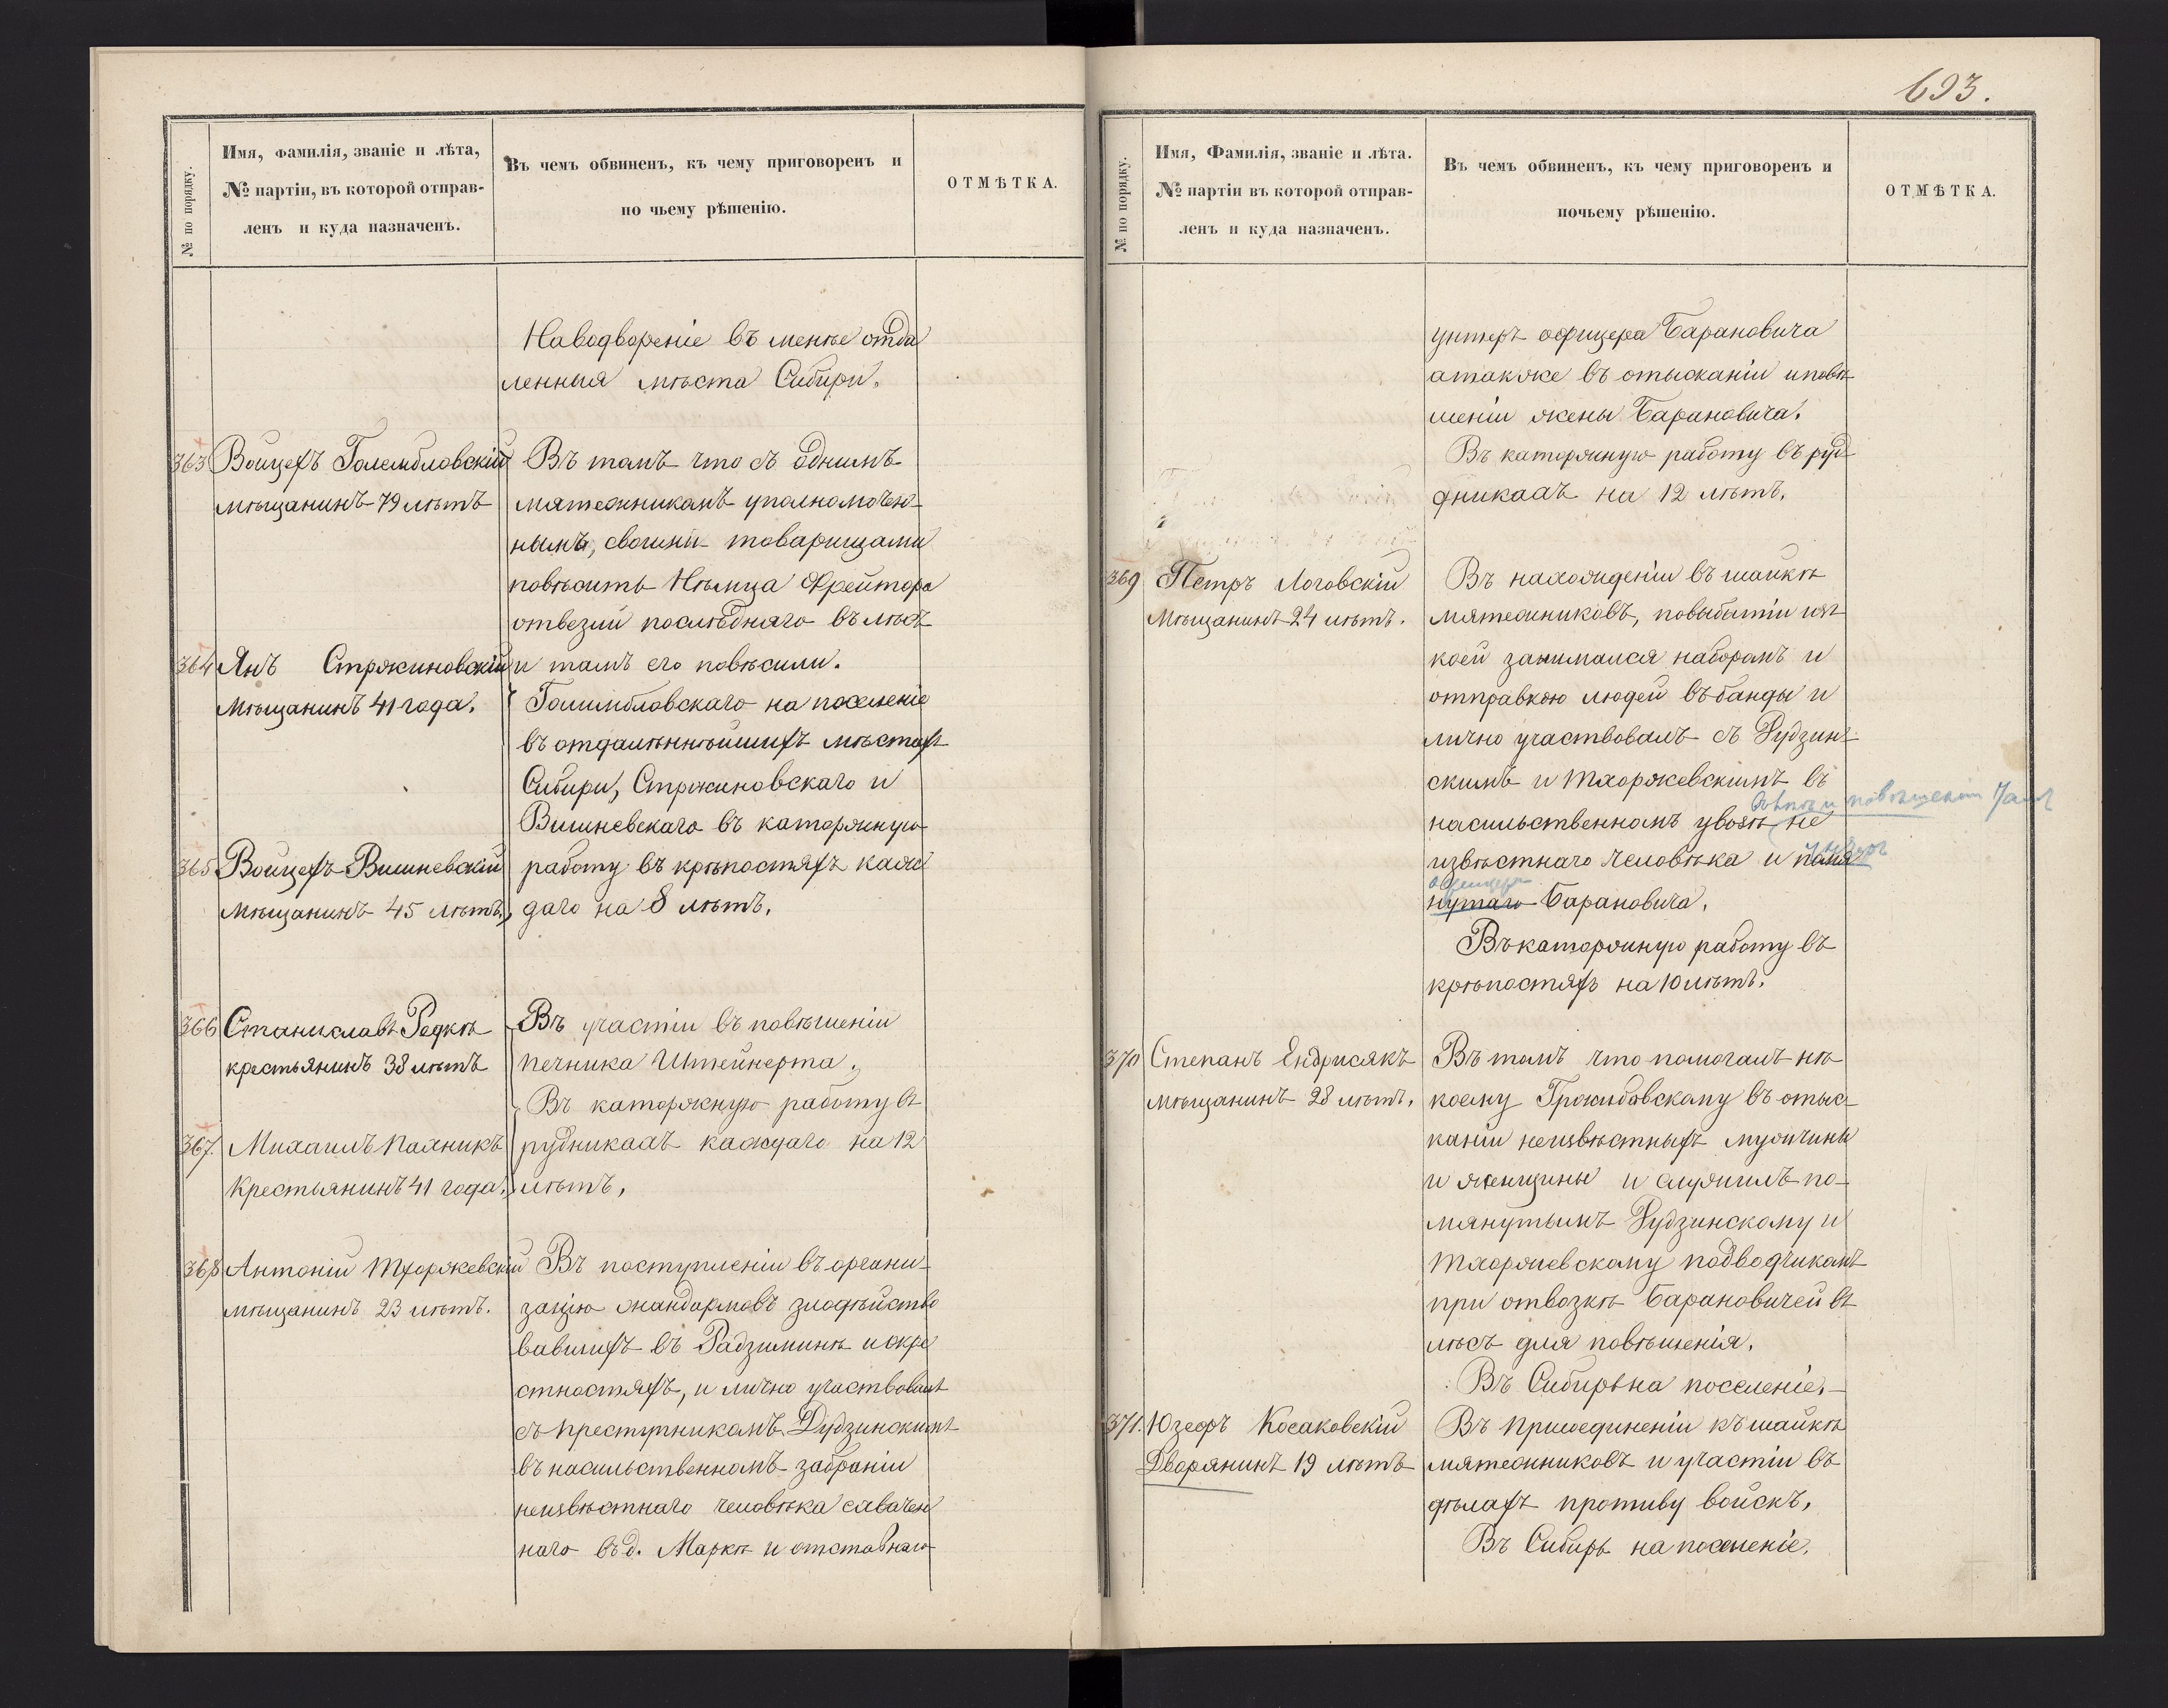 693.
№ по порядку.
Имя, фамилія, званіе и лѣта,
№ партіи, въ которой отправ-
ленъ и куда назначенъ.
Въ чемъ обвиненъ, къ чему приговоренъ и
по чьему рѣшенію.
ОТМѢТКА.
Наводвореніе въ менѣе отда
ленныя мѣста Сибири.
363 Войцехъ Голембловскій
мѣщанинъ 79 лѣтъ
364 Янъ Стржиновскій
мѣщанинъ 41 года.
365 Войцехъ Вишневскій
мѣщанинъ 45 лѣтъ,
Въ томъ что съ однимъ
мятежникомъ уполномочен-
нымъ, своими товарищами
повѣсить Нѣмца Фрейтора
отвезли послѣдняго въ лѣсъ
и тамъ его повѣсили.
Голимбловскаго на поселеніе
въ отдаленнѣйшихъ мѣстахъ
Сибири, Стржиновскаго и
Вишневскаго въ каторжную
работу въ крѣпостяхъ каж
даго на 8 лѣтъ.
366 Станиславъ Редкѣ
крестьянинъ 38 лѣтъ
367. Михаилъ Пахникъ
Крестьянинъ 41 года.
Въ участіи въ повѣшеніи
печника Штейнерта.
Въ каторжную работу въ
рудникахъ каждаго на 12
лѣтъ.
368 Антоній Тхоржевскій
мѣщанинъ 23 лѣтъ.
Въ поступленіи въ органи-
зацію жандармовъ злодѣйство
вавшихъ въ Радзиминѣ и окре
стностяхъ, и лично участвовалъ
съ преступникомъ Дудзинскимъ
въ насильственномъ забраніи
неизвѣстнаго человѣка схвачен
наго въ д. Марки и отставнаго
№ по порядку.
Имя, Фамилія, званіе и лѣта.
№ партіи въ которой отправ-
ленъ и куда назначенъ.
Въ чемъ обвиненъ, къ чему приговоренъ и
почьему рѣшенію.
ОТМѢТКА.
унтеръ офицера Барановича
атакже въ отысканіи и повѣ
шеніи жены Барановича.
Въ каторжную работу въ руд
дникахъ на 12 лѣтъ.
369 Петръ Логовскій
Мѣщанинъ 24 лѣтъ.
Въ нахожденіи въ шайкѣ
мятежниковъ, повыбытіи изъ
коей занимался наборомъ и
отправкою людей въ банды и
лично участвовалъ съ Дудзин-
скимъ и Тхоржевскимъ въ
повѣшеніи
насильственномъ увозѣ не
извѣстнаго человѣка и помя
офицера
нутаго Барановича.
Въ каторжную работу въ
крѣпостяхъ на 10 лѣтъ.
370 Степанъ Ендрисякъ
мѣщанинъ 28 лѣтъ.
Въ томъ что помогалъ нѣ
коему Гржибовскому въ отыс-
каніи неизвѣстныхъ мужчины
и женщины и служилъ по-
мянутымъ Дудзинскому и
Тхоржевскому подводчикомъ
при отвозкѣ Барановичей въ
лѣсъ для повѣшенія.
Въ Сибирь на поселеніе.
371. Юзефъ Косаковскій
Дворянинъ 19 лѣтъ
Въ присоединеніи къ шайкѣ
мятежниковъ и участіи въ
дѣлахъ противу войскъ.
Въ Сибирь на поселеніе.